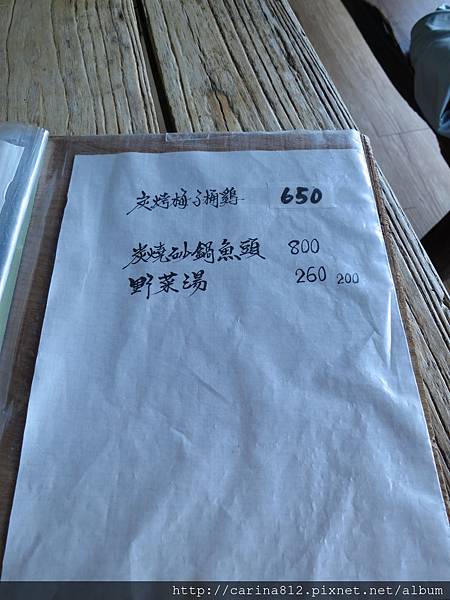 炭烤梅子桶鷄 650
炭燒砂鍋魚頭 800
野菜湯 260 200
http://carina812.pixnet.net/album